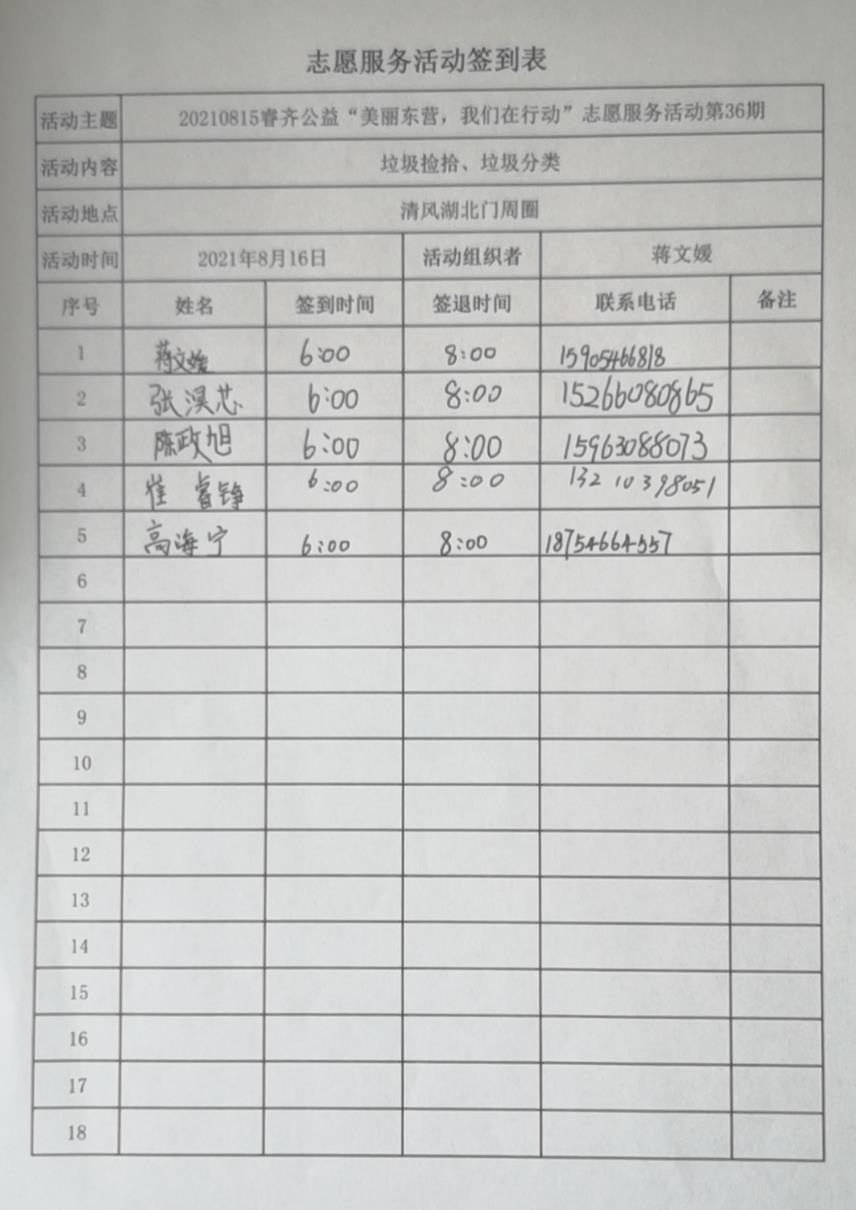 志愿服务活动签到表
活动主题 20210815睿齐公益“美丽东营，我们在行动”志愿服务活动第36期
活动内容 垃圾捡拾、垃圾分类
活动地点 清风湖北门周圈
活动时间 2021年8月16日 活动组织者 蒋文媛
序号 姓名 签到时间 签退时间 联系电话 备注
1 蒋文媛 6:00 8:00 15905466818
2 张淏芯 6:00 8:00 15266080865
3 陈政旭 6:00 8:00 15963088073
4 崔睿铮 6:00 8:00 13210398051
5 高海宁 6:00 8:00 18754664557
6
7
8
9
10
11
12
13
14
15
16
17
18